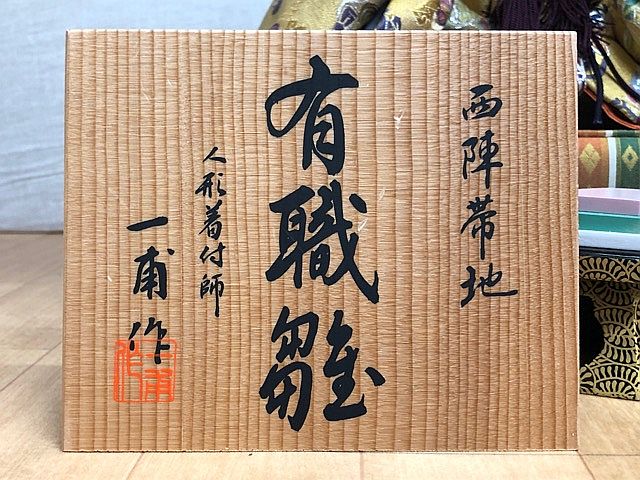 西陣帯地
有職雛
人形着付師
一甫作